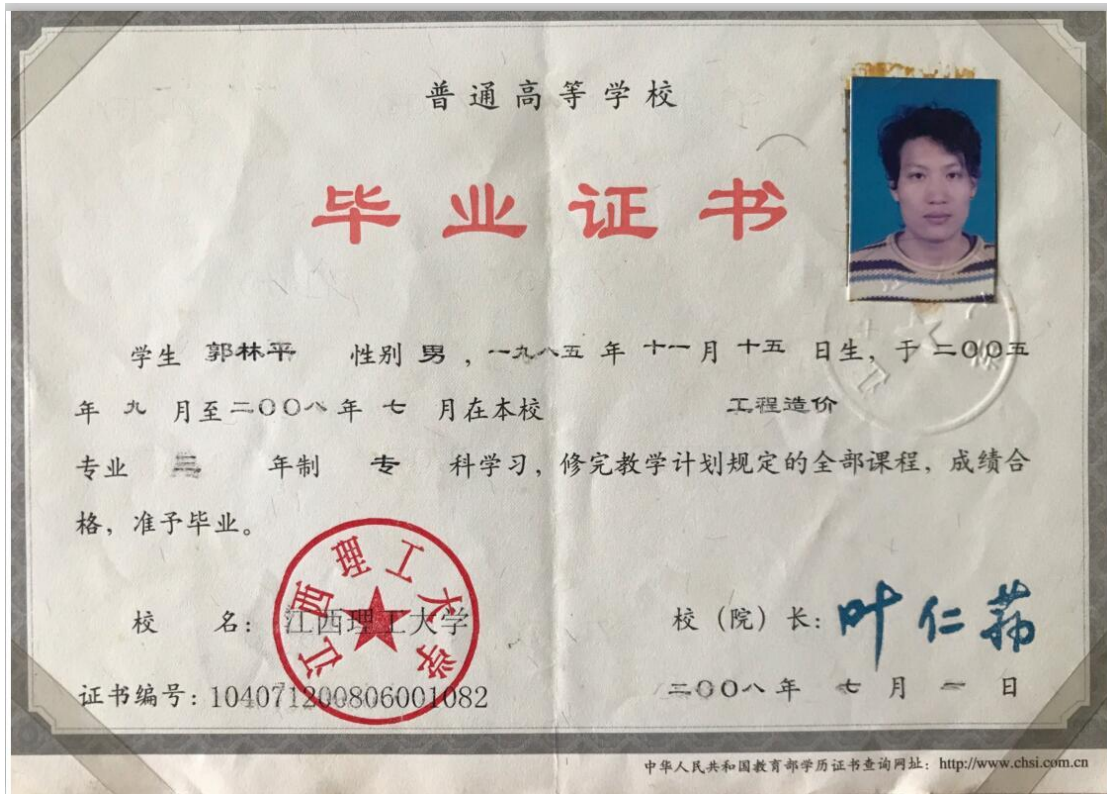 普通高等学校
毕业证书
学生 郭林平 性别 男 ，一九八五 年 十一 月 十五 日生，于 二〇〇五
年 九 月至 二〇〇八 年 七 月在本校 工程造价
专业 三 年制 专 科学习，修完教学计划规定的全部课程，成绩合
格，准予毕业。
江西理工大学
校 名：江西理工大学
校（院）长：叶仁荪
证书编号：104071200806001082
二〇〇八 年 七 月 一 日
中华人民共和国教育部学历证书查询网址：http://www.chsi.com.cn